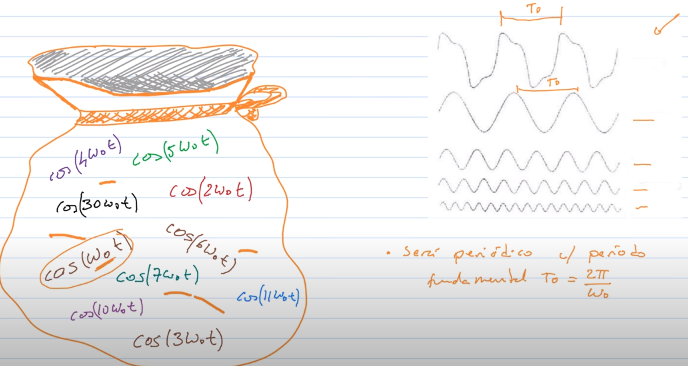 T₀
T₀
cos(4ω₀t)
cos(5ω₀t)
cos(30ω₀t)
cos(2ω₀t)
cos(ω₀t)
cos(6ω₀t)
cos(7ω₀t)
cos(11ω₀t)
cos(10ω₀t)
cos(3ω₀t)
• Será periódico c/ período
fundamental T₀ = 2π/ω₀